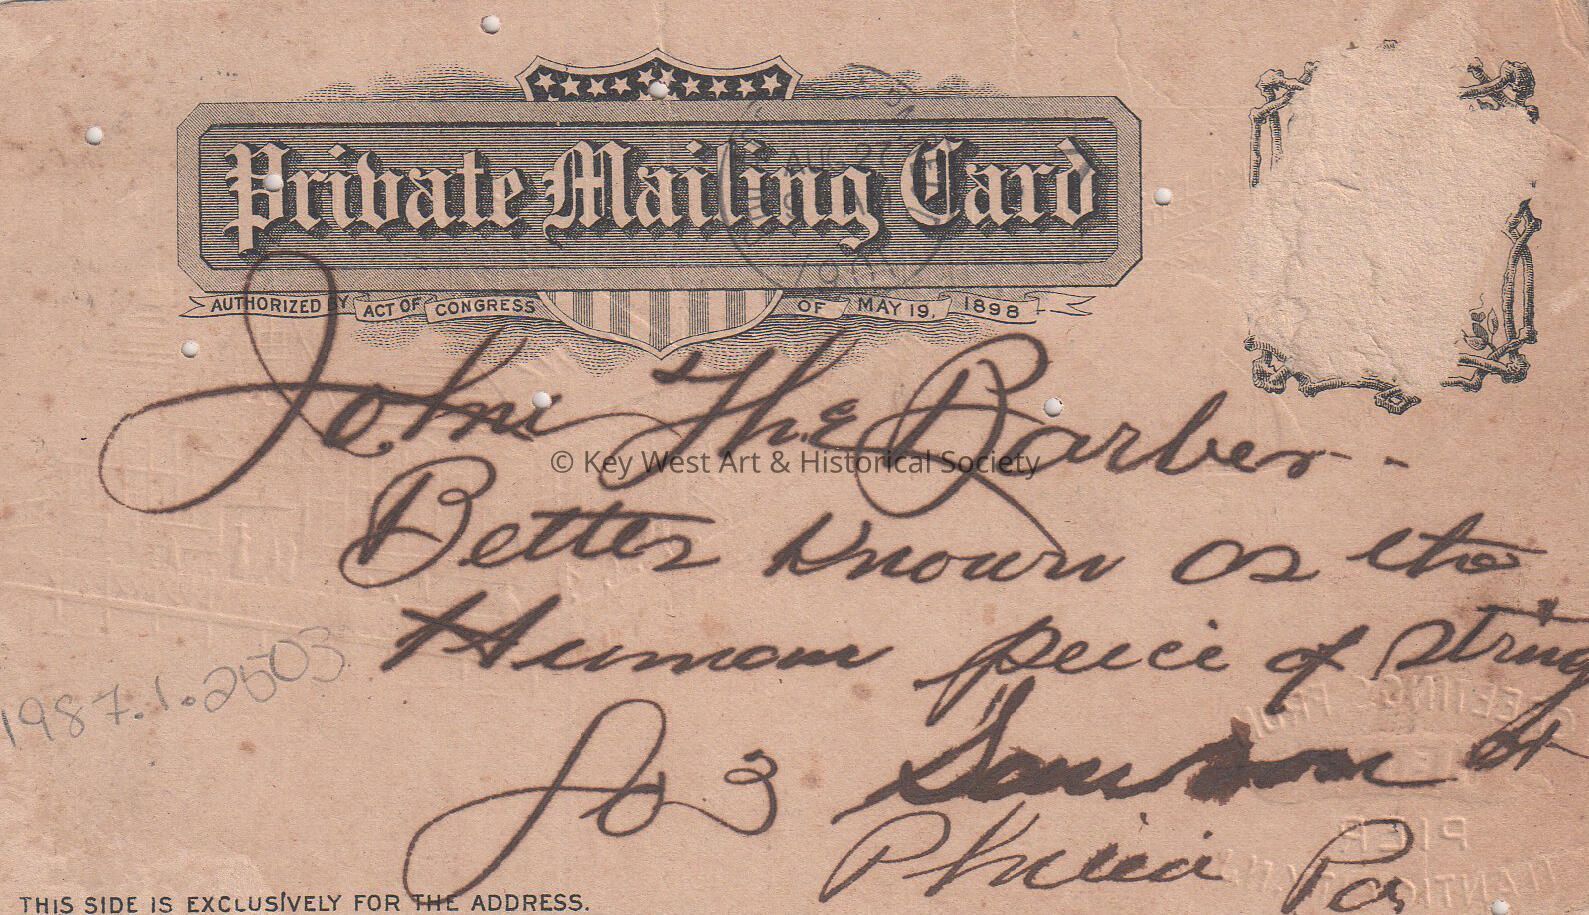 Private Mailing Card
AUTHORIZED BY ACT OF CONGRESS OF MAY 19, 1898
AUG 27
John The Barber
© Key West Art & Historical Society
Better Known as the
Human peice of String
1987.1.2503
GREETINGS FROM
st
PIER
Phila Pa
ATLANTIC
THIS SIDE IS EXCLUSIVELY FOR THE ADDRESS.